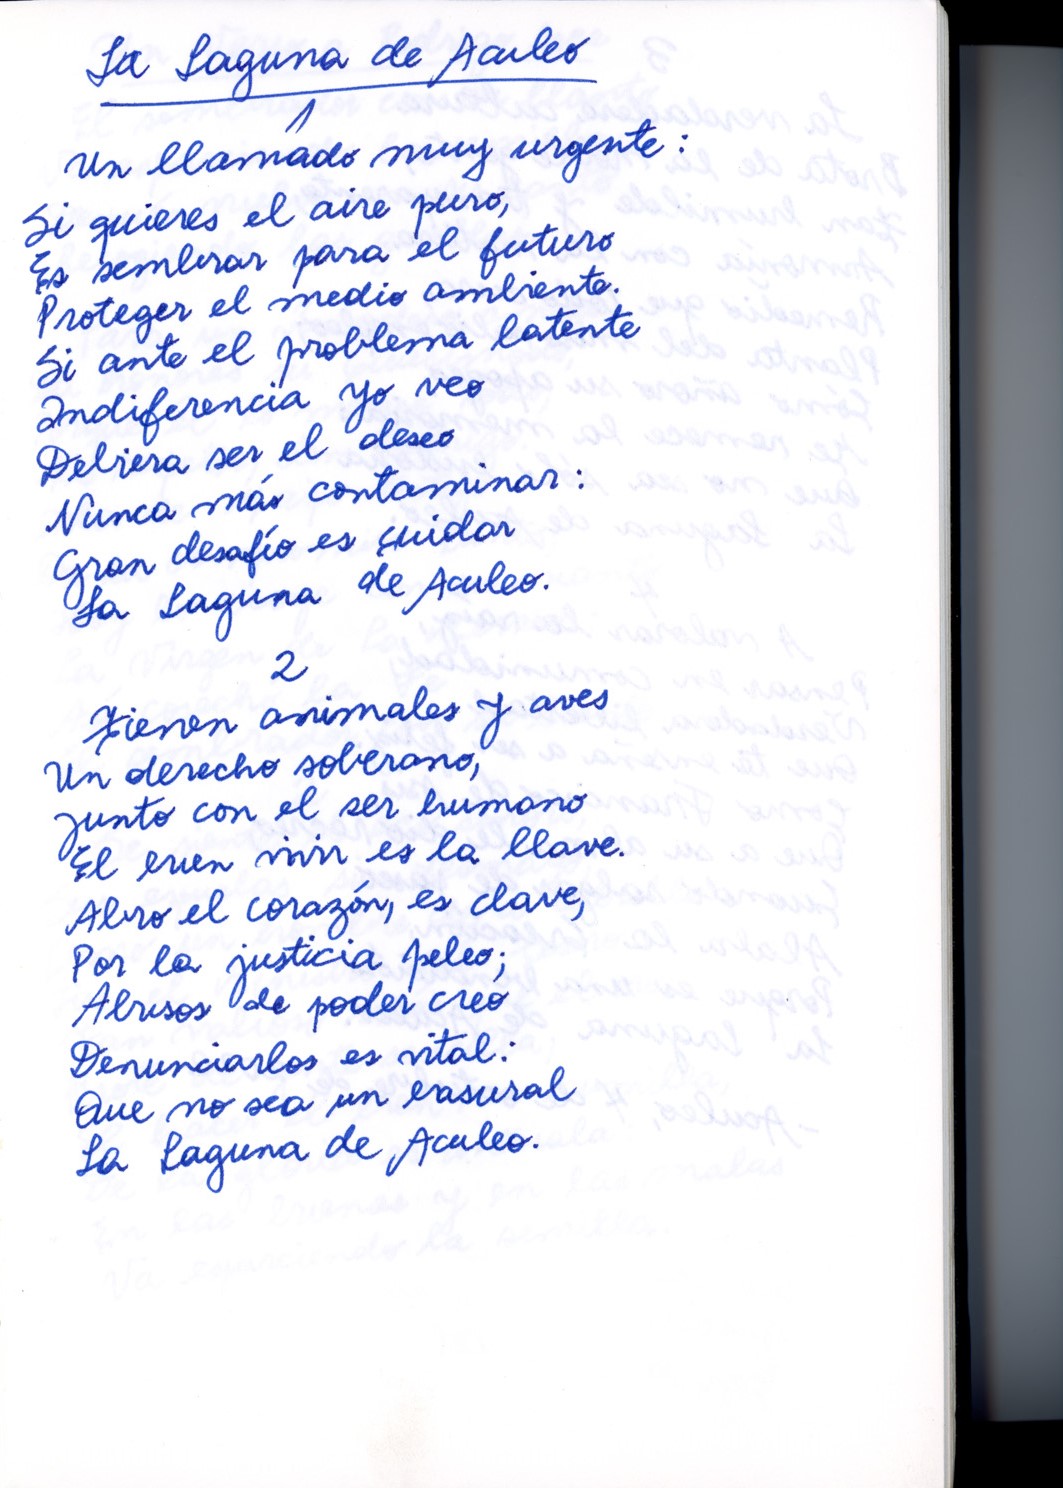 La Laguna de Aculeo
1
Un llamado muy urgente:
Si quieres el aire puro,
Es sembrar para el futuro
Proteger el medio ambiente.
Si ante el problema latente
Indiferencia yo veo
Debiera ser el deseo
Nunca más contaminar:
Gran desafío es cuidar
La Laguna de Aculeo.
2
Tienen animales y aves
Un derecho soberano,
Junto con el ser humano
El buen vivir es la llave.
Abro el corazón, es clave,
Por la justicia peleo;
Abusos de poder creo
Denunciarlos es vital:
Que no sea un basural
La Laguna de Aculeo.